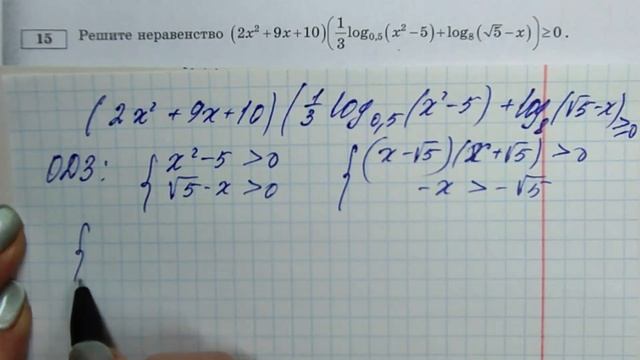 15 Решите неравенство (2x² + 9x + 10)(1/3 log₀,₅(x² − 5) + log₈(√5 − x)) ≥ 0 .
(2x² + 9x + 10)(1/3 log₀,₅(x² − 5) + log₈(√5 − x) ≥ 0
ОДЗ: { x² − 5 > 0 { (x − √5)(x + √5) > 0
√5 − x > 0 −x > −√5
{